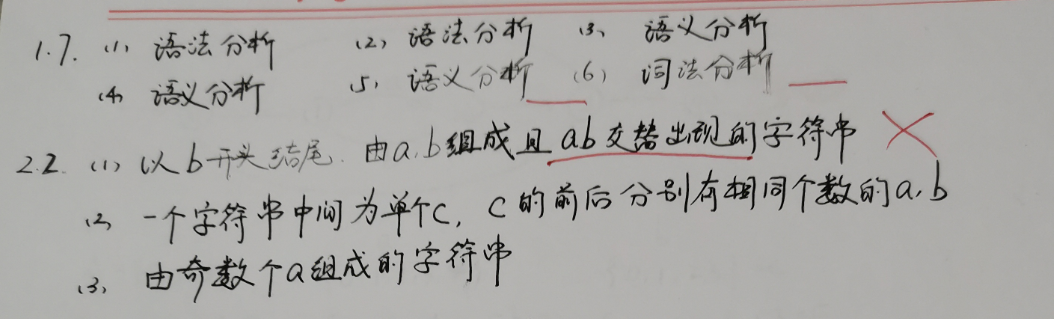 1.7. (1) 语法分析 (2) 语法分析 (3) 语义分析
(4) 语义分析 (5) 语义分析 (6) 词法分析
2.2. (1) 以b开头结尾. 由a.b组成且ab交替出现的字符串
(2) 一个字符串中间为单个c, c的前后分别有相同个数的a.b
(3) 由奇数个a组成的字符串